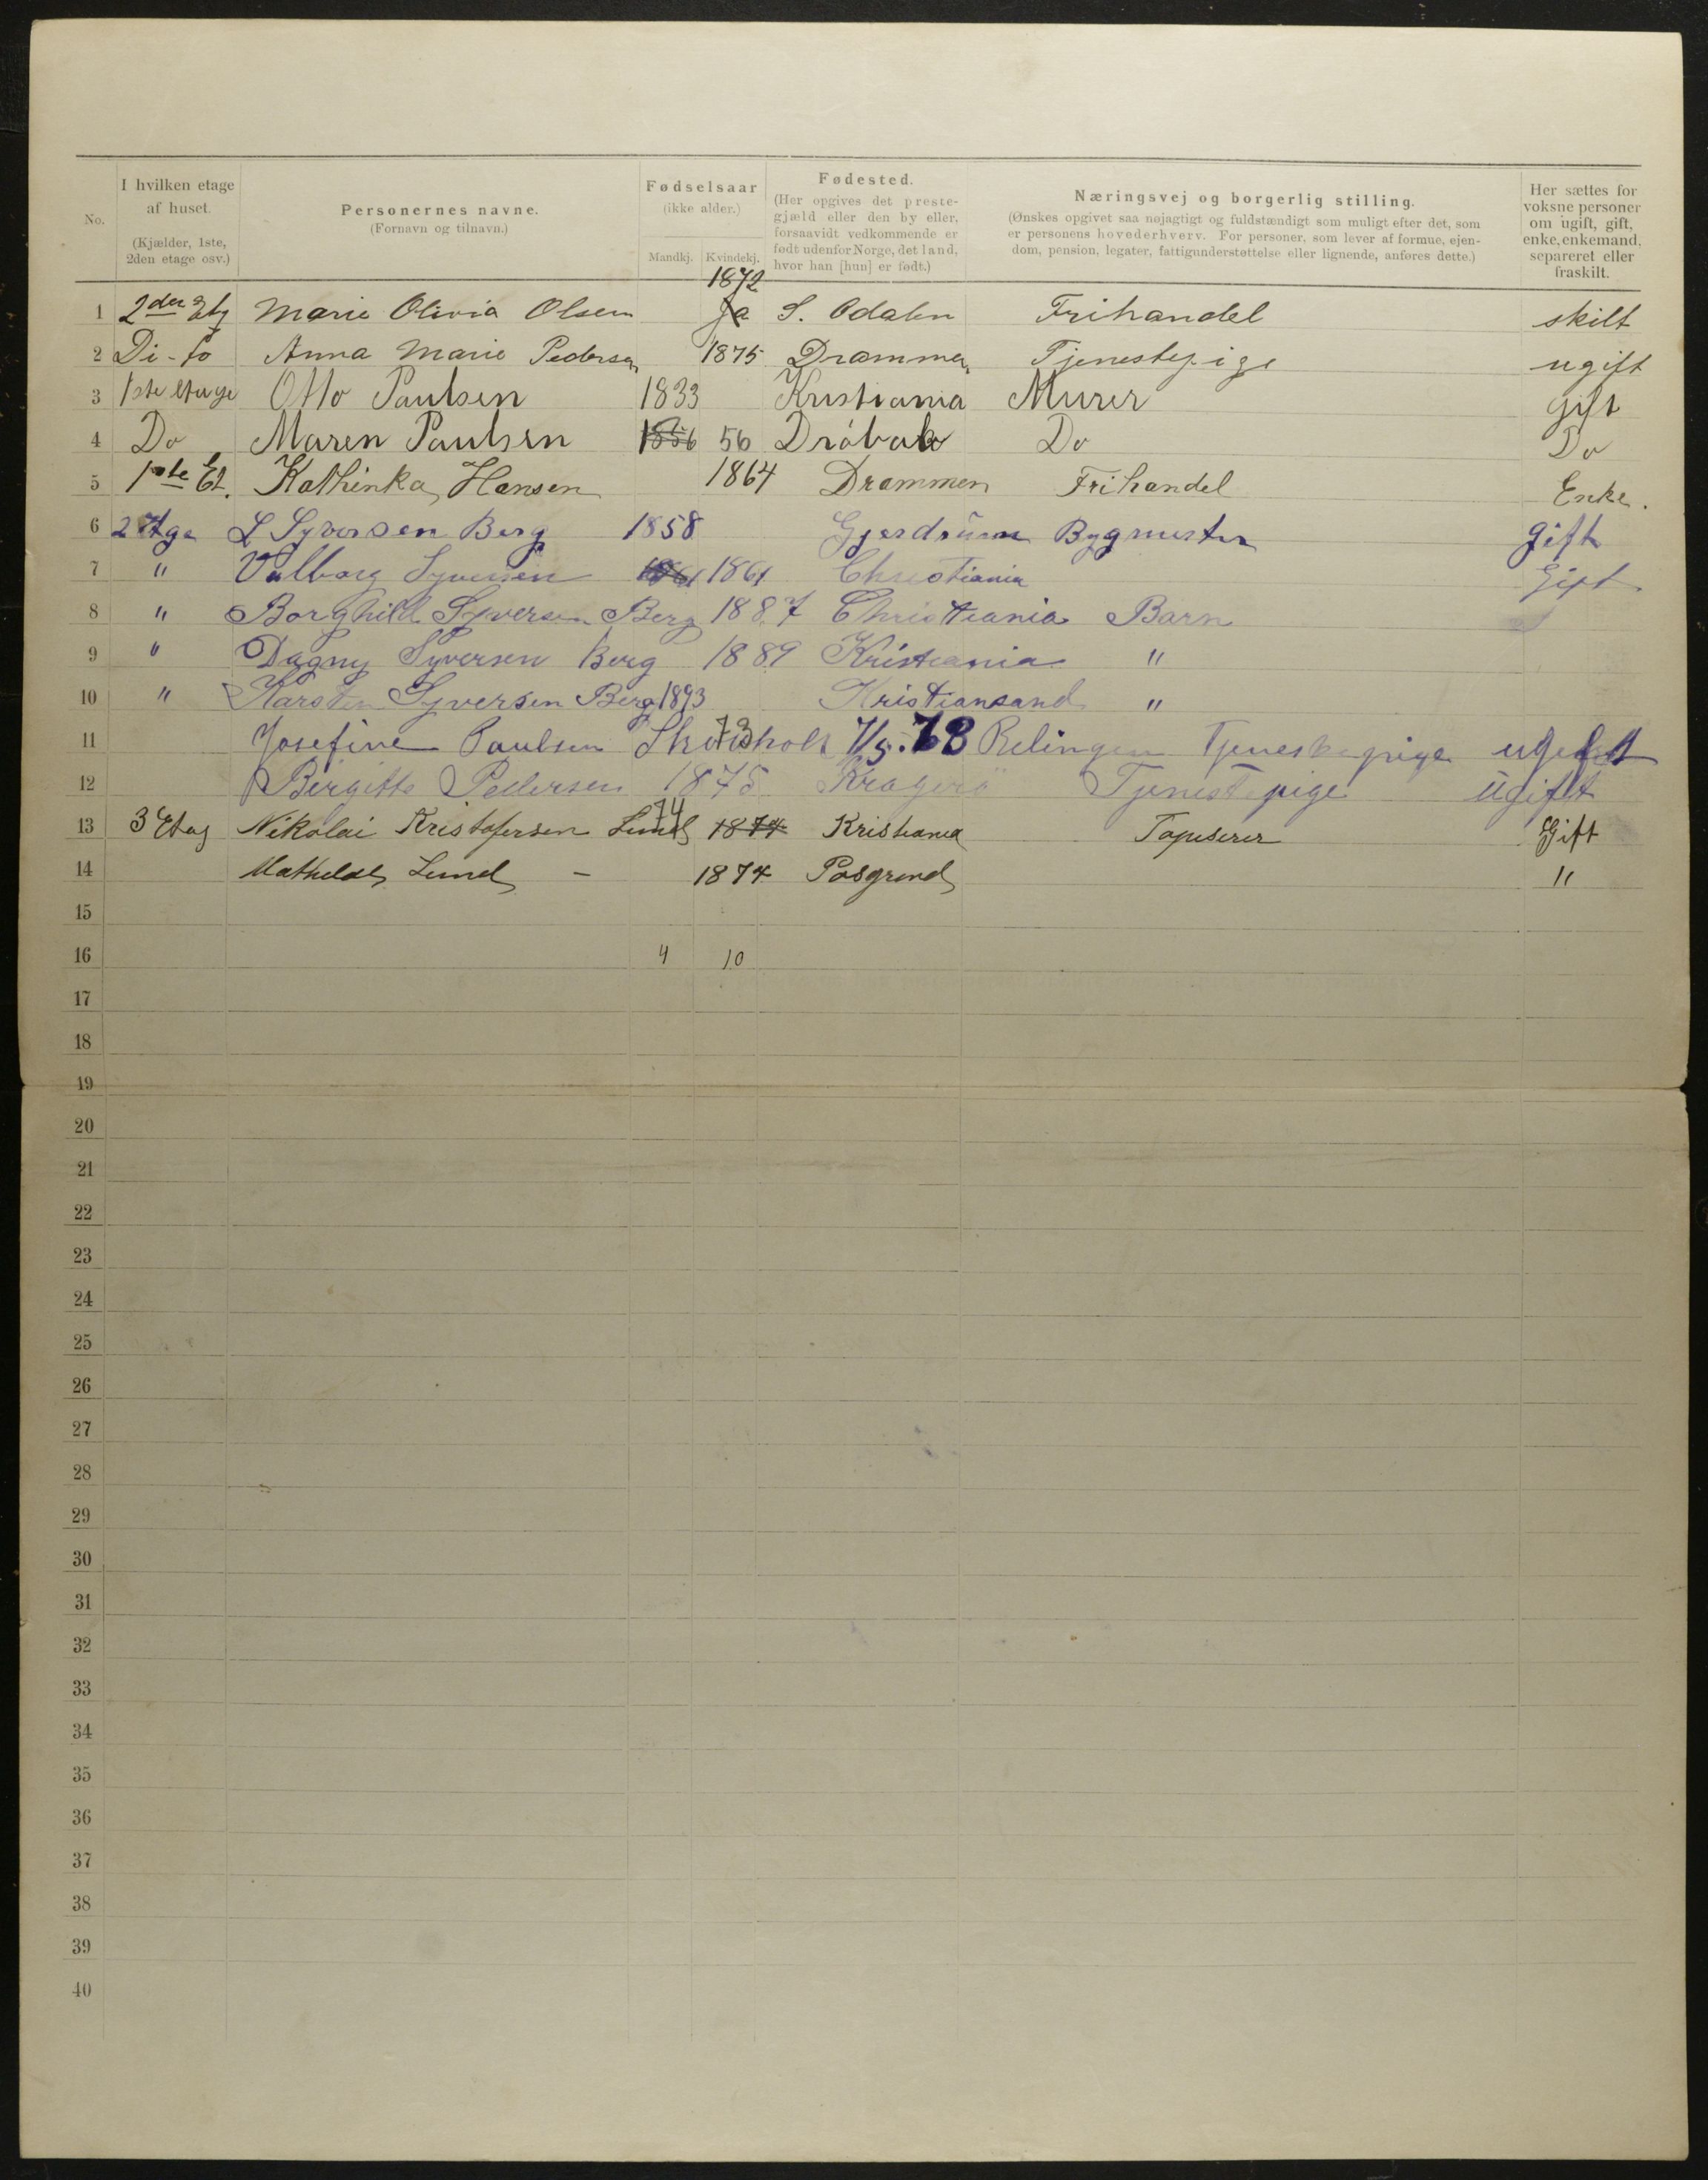 No.
I hvilken etage af huset.
(Kjælder, 1ste, 2den etage osv.)
Personernes navne.
(Fornavn og tilnavn.)
Fødselsaar
(ikke alder.)
Mandkj. Kvindekj.
Fødested.
(Her opgives det preste-
gjæld eller den by eller,
forsaavidt vedkommende er
født udenfor Norge, det land,
hvor han [hun] er født.)
Næringsvej og borgerlig stilling.
(Ønskes opgivet saa nøjagtigt og fuldstændigt som muligt efter det, som
er personens hovederhverv. For personer, som lever af formue, ejen-
dom, pension, legater, fattigunderstøttelse eller lignende, anføres dette.)
Her sættes for
voksne personer
om ugift, gift,
enke, enkemand,
separeret eller
fraskilt.
1872
1 2den Etg Marie Olivia Olsen Ja S. Odalen Frihandel skilt
2 Di-to Anna Marie Pedersen 1875 Drammen Tjenestepige ugift
3 1ste etage Otto Paulsen 1833 Kristiania Murer gift
4 Do Maren Paulsen 1856 56 Dröbak Do Do
5 1ste Et. Kathinka Hansen 1864 Drammen Frihandel Enke.
6 2 Etge L Syversen Berg 1858 Gjerdrum Bygmester gift
7 " Valborg Syversen 1861 1861 Christiania Gift
8 " Borghild Syversen Berg 1887 Christiania Barn
9 " Dagny Syversen Berg 1889 Kristiania "
10 " Karsten Syversen Berg 1893 Kristiansand "
11 Josefine Paulsen 73 7/5. 73 Relingen Tjenestepige ugift
12 Birgitte Pedersen 1875 Kragerö Tjenestepige Ugift
74
13 3 Etag Nikolai Kristofersen Lund 1874 Kristiania Tapeserer Gift
14 Mathilde Lund - 1874 Posgrund "
15
16 4 10
17
18
19
20
21
22
23
24
25
26
27
28
29
30
31
32
33
34
35
36
37
38
39
40